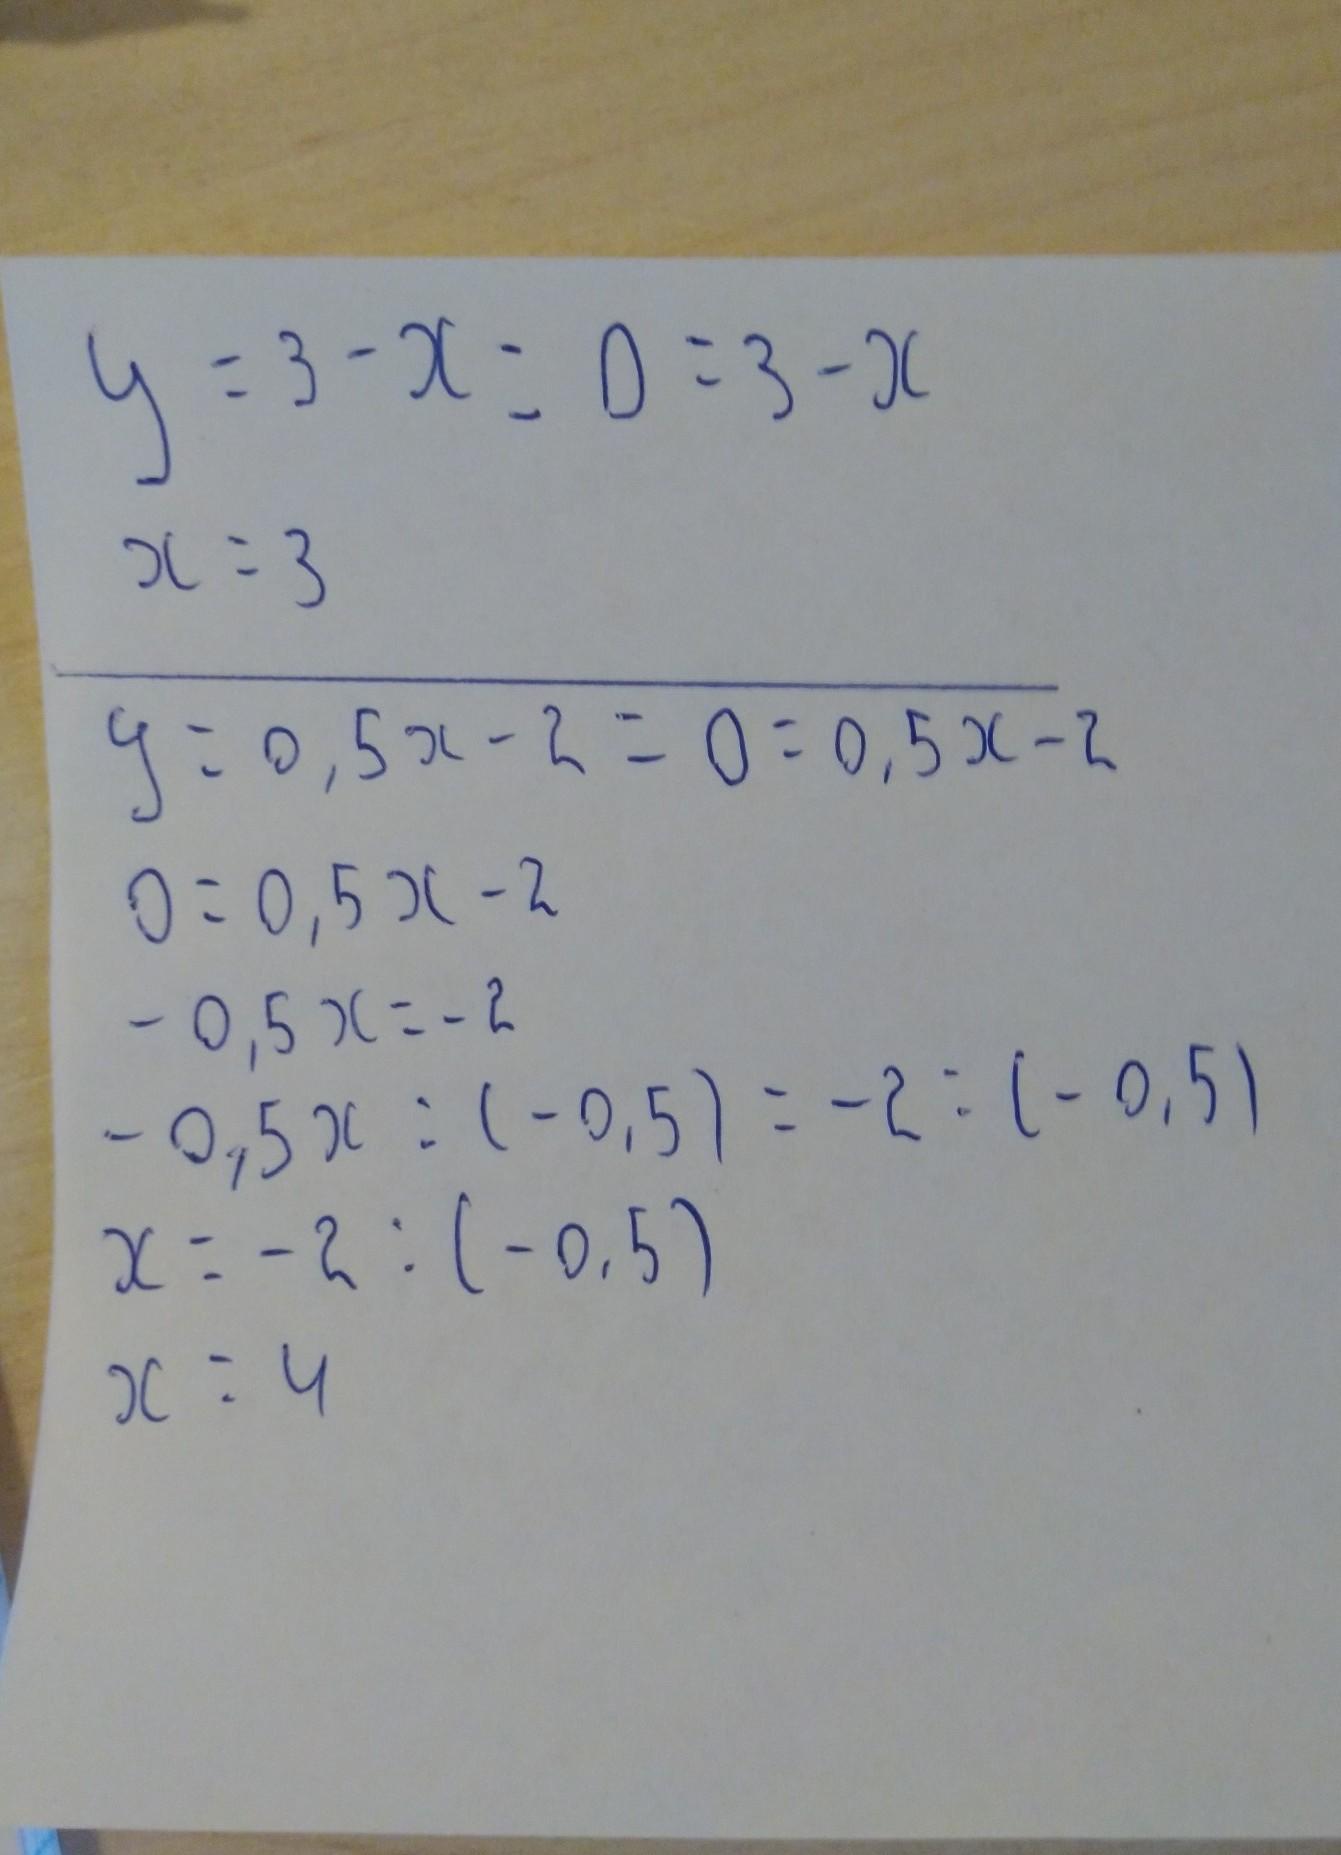 y = 3 - x = 0 = 3 - x
x = 3
y = 0,5x - 2 = 0 = 0,5x - 2
0 = 0,5x - 2
- 0,5x = - 2
- 0,5x : (- 0,5) = - 2 : (- 0,5)
x = - 2 : (- 0,5)
x = 4